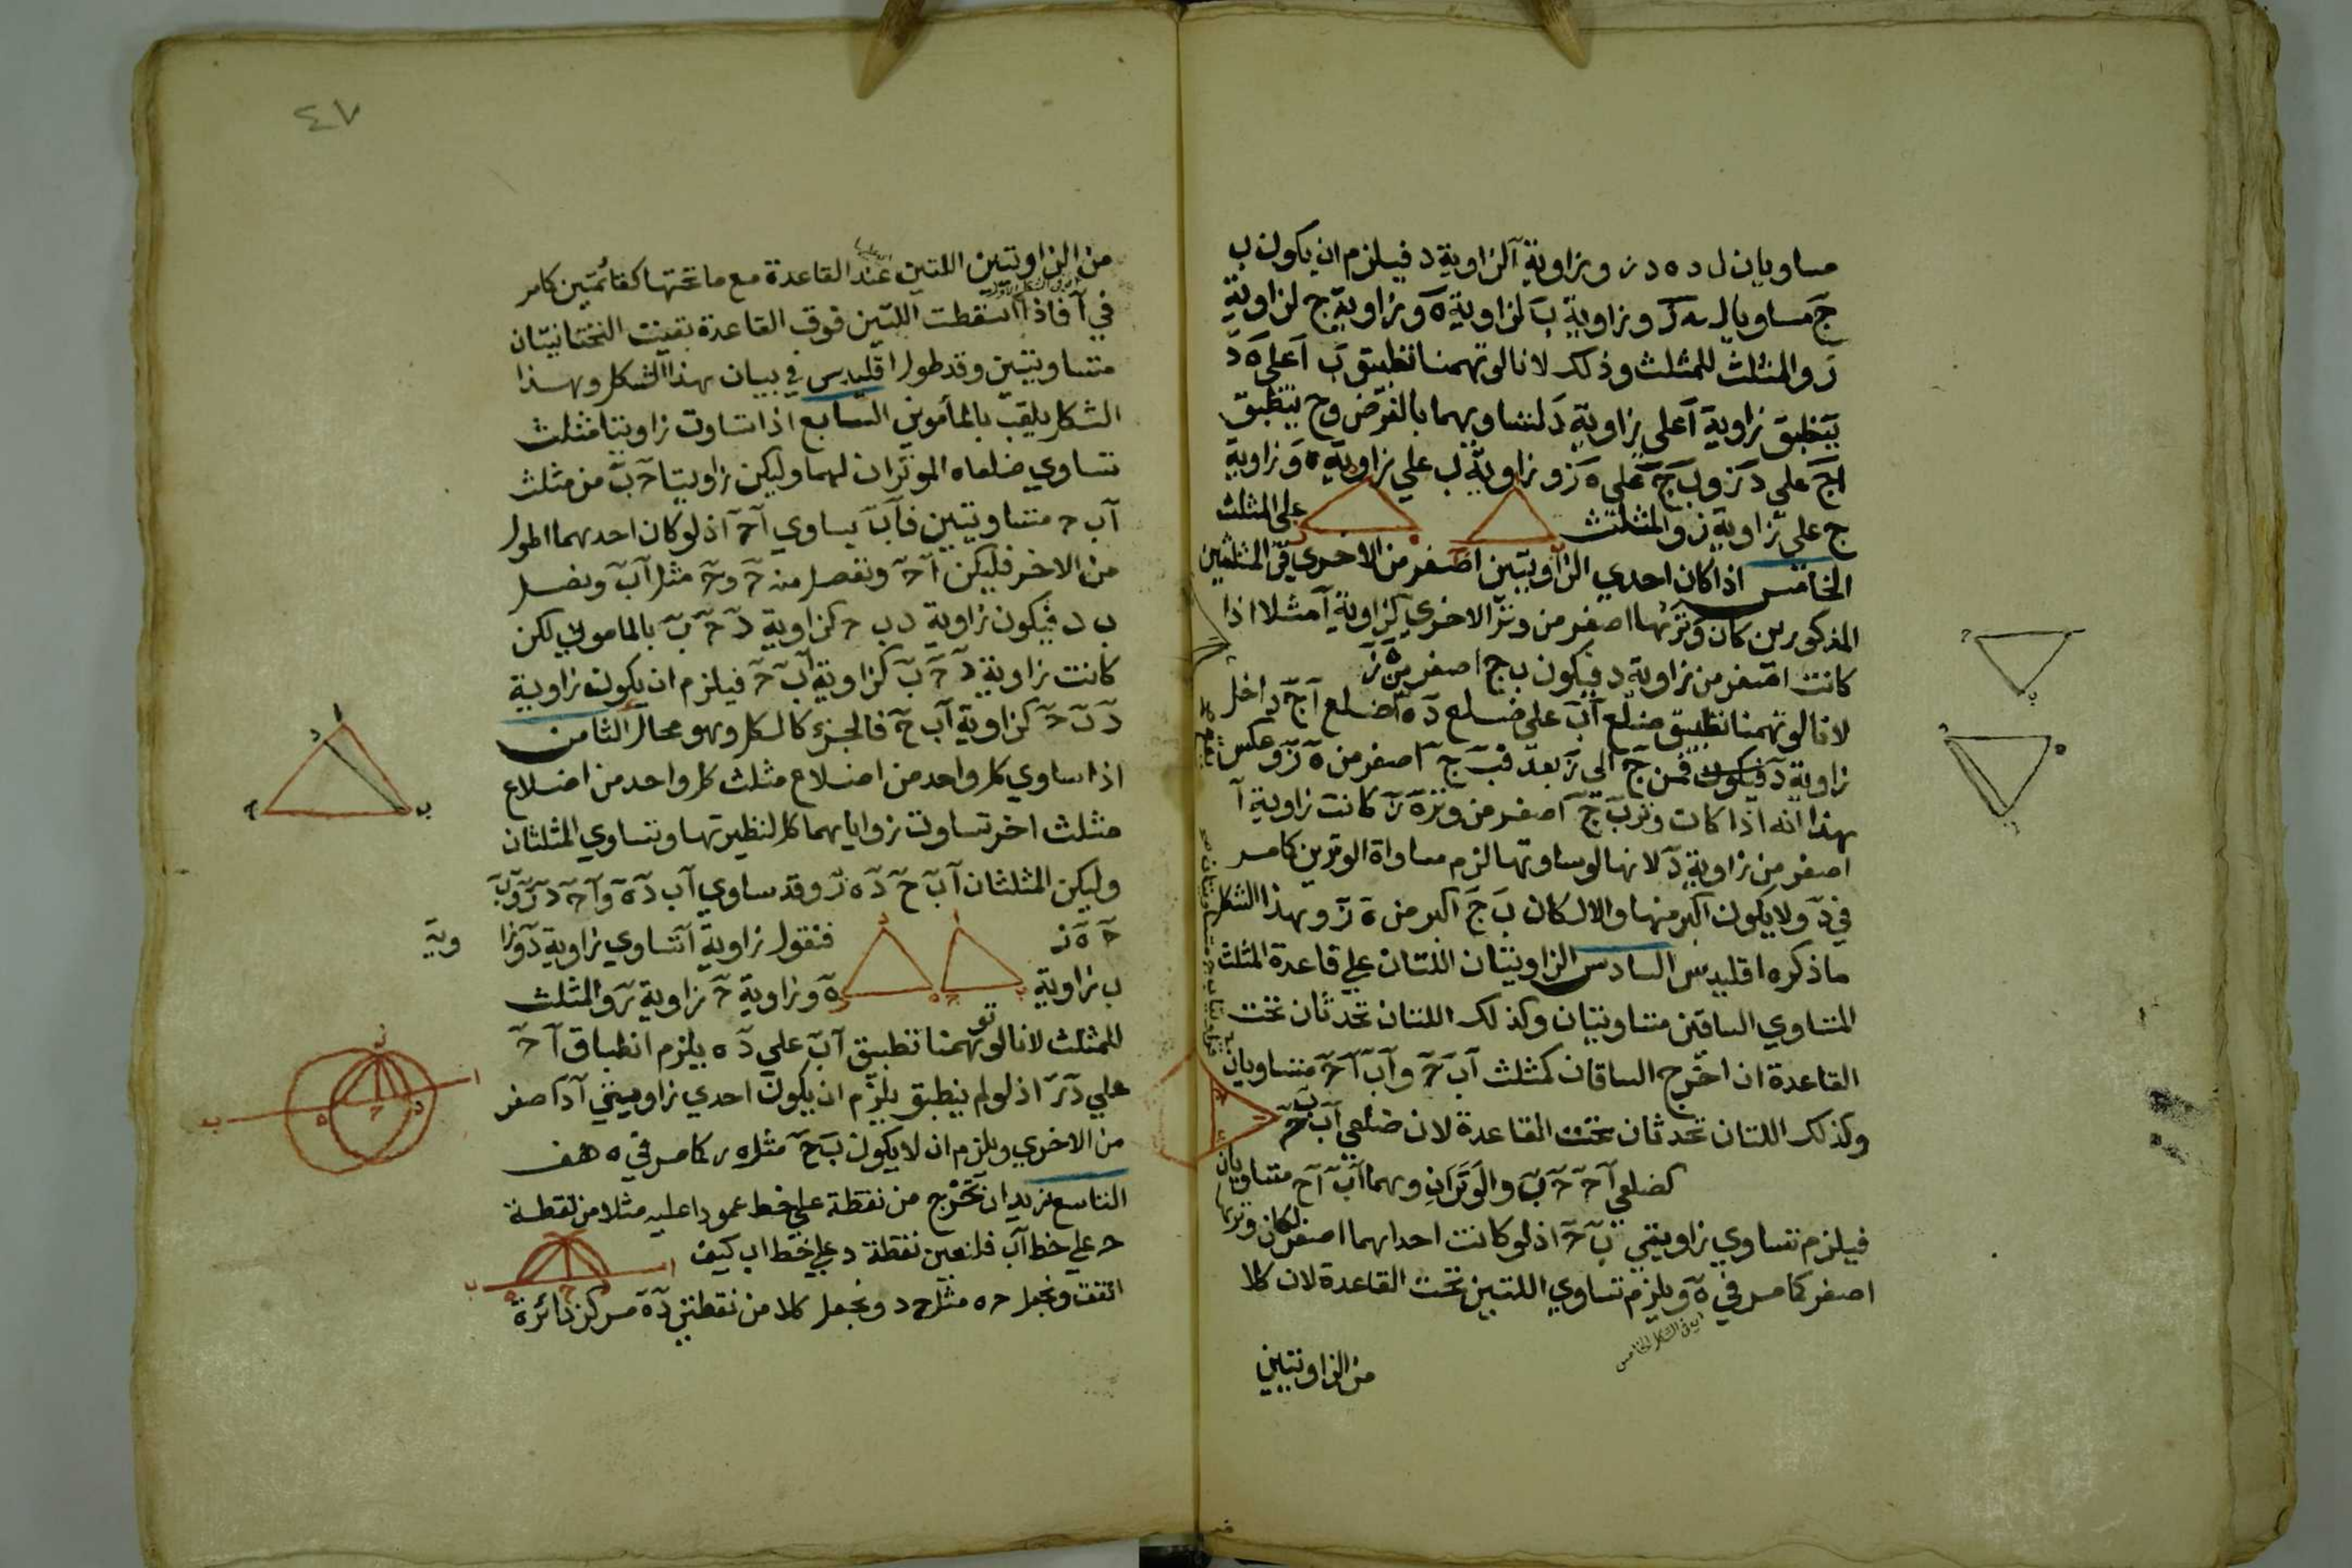 مساويان ل د ه د ز وزاوية آ لزاوية د فيلزم ان يكون ب
ج مساويا ل ه ز وزاوية ب لزاوية ه وزاوية ج لزاوية
ز والمثلث للمثلث وذلك لانا لو توهمنا تطبيق ب ا على ه د
ينطبق زاوية ا على زاوية د لتساويهما بالفرض وح ينطبق
ا ج على د ز و ب ج على ه ز وزاوية ب على زاوية ه وزاوية
ج على زاوية ز والمثلث على المثلث
الخامس اذا كان احدي الزاويتين اصغر من الاخري في المثلثين
المذكورين كان وترها اصغر من وتر الاخري كزاوية آ مثلا اذا
كانت اصغر من زاوية د فيكون ب ج اصغر من ه ز
لانا لو توهمنا تطبيق ضلع آب على ضلع د ه ضلع آ ج داخل
زاوية د فمن ج الي ز بعد ف ب ج اصغر من ه ز وعكس
هذا انه اذا كانت وتر ب ج اصغر من وتر ه ز كانت زاوية آ
اصغر من زاوية د لانها لو ساوتها لزم مساواة الوترين كامر
في د ولا يكون اكبر منها والا لكان ب ج اكبر من ه ز وبهذا الشكل
ما ذكره اقليدس السادس الزاويتان اللتان على قاعدة المثلث
المتساوي الساقين متساويتان وكذلك اللتان تحدثان تحت
القاعدة ان اخرج الساقان كمثلث آب ح و آب آ ح متساويان
وكذلك اللتان تحدثان تحت القاعدة لان ضلعي آب ب ح
كضلعي آ ح ح ب والوتران وهما آب آ ح متساويان
فيلزم تساوي زاويتي ب ح اذ لو كانت احداهما اصغر لكان وترها
اصغر كامر في ه ويلزم تساوي اللتين تحت القاعدة لان كلا
اي في الشكل الخامس
من الزاويتين
٤٧
من الزاويتين اللتين عند القاعدة مع ما تحتها كقائمتين كامر
في آ فاذا اسقطت اللتين فوق القاعدة بقيت التحتانيتان
متساويتين وقد طول اقليدس في بيان هذا الشكل وهذا
الشكل يلقب بالمأموني السابع اذا تساوت زاويتا مثلث
تساوي ضلعاه الموتران لهما وليكن زاويتا ح ب من مثلث
آب ح متساويتين فآب يساوي آ ح اذ لو كان احدهما اطول
من الاخر فليكن آ ح ونفصل منه ح د ح مثل آب ونصل
ب د فيكون زاوية د ب ح كزاوية د ح ب بالماموني لكن
كانت زاوية د ح ب كزاوية آب ح فيلزم ان يكون زاوية
د ب ح كزاوية آب ح فالجزء كالكل وهو محال الثامن
اذا ساوي كل واحد من اضلاع مثلث كل واحد من اضلاع
مثلث اخر تساوت زواياهما كل لنظيرتها وتساوي المثلثان
وليكن المثلثان آب ح د ه ز وقد ساوي آب د ه و آ ح د ز و ب
ح ه ز فنقول زاوية آ تساوي زاوية د وزا وية
ب زاوية ه وزاوية ح زاوية ز والمثلث
للمثلث لانا لو توهمنا تطبيق آب على د ه يلزم انطباق آ ح
على د ز اذ لو لم ينطبق يلزم ان يكون احدي زاويتي آ د اصغر
من الاخري ويلزم ان لا يكون ب ح مثل ه ز كامر في ه هف
التاسع نريد ان نخرج من نقطة على خط عمودا عليه مثلا من نقطة
ح على خط آب فلنعين نقطة د على خط اب كيف
اتفقت ونجعل ح ه مثل ح د ونجعل كلا من نقطتي د ه مركز دائرة